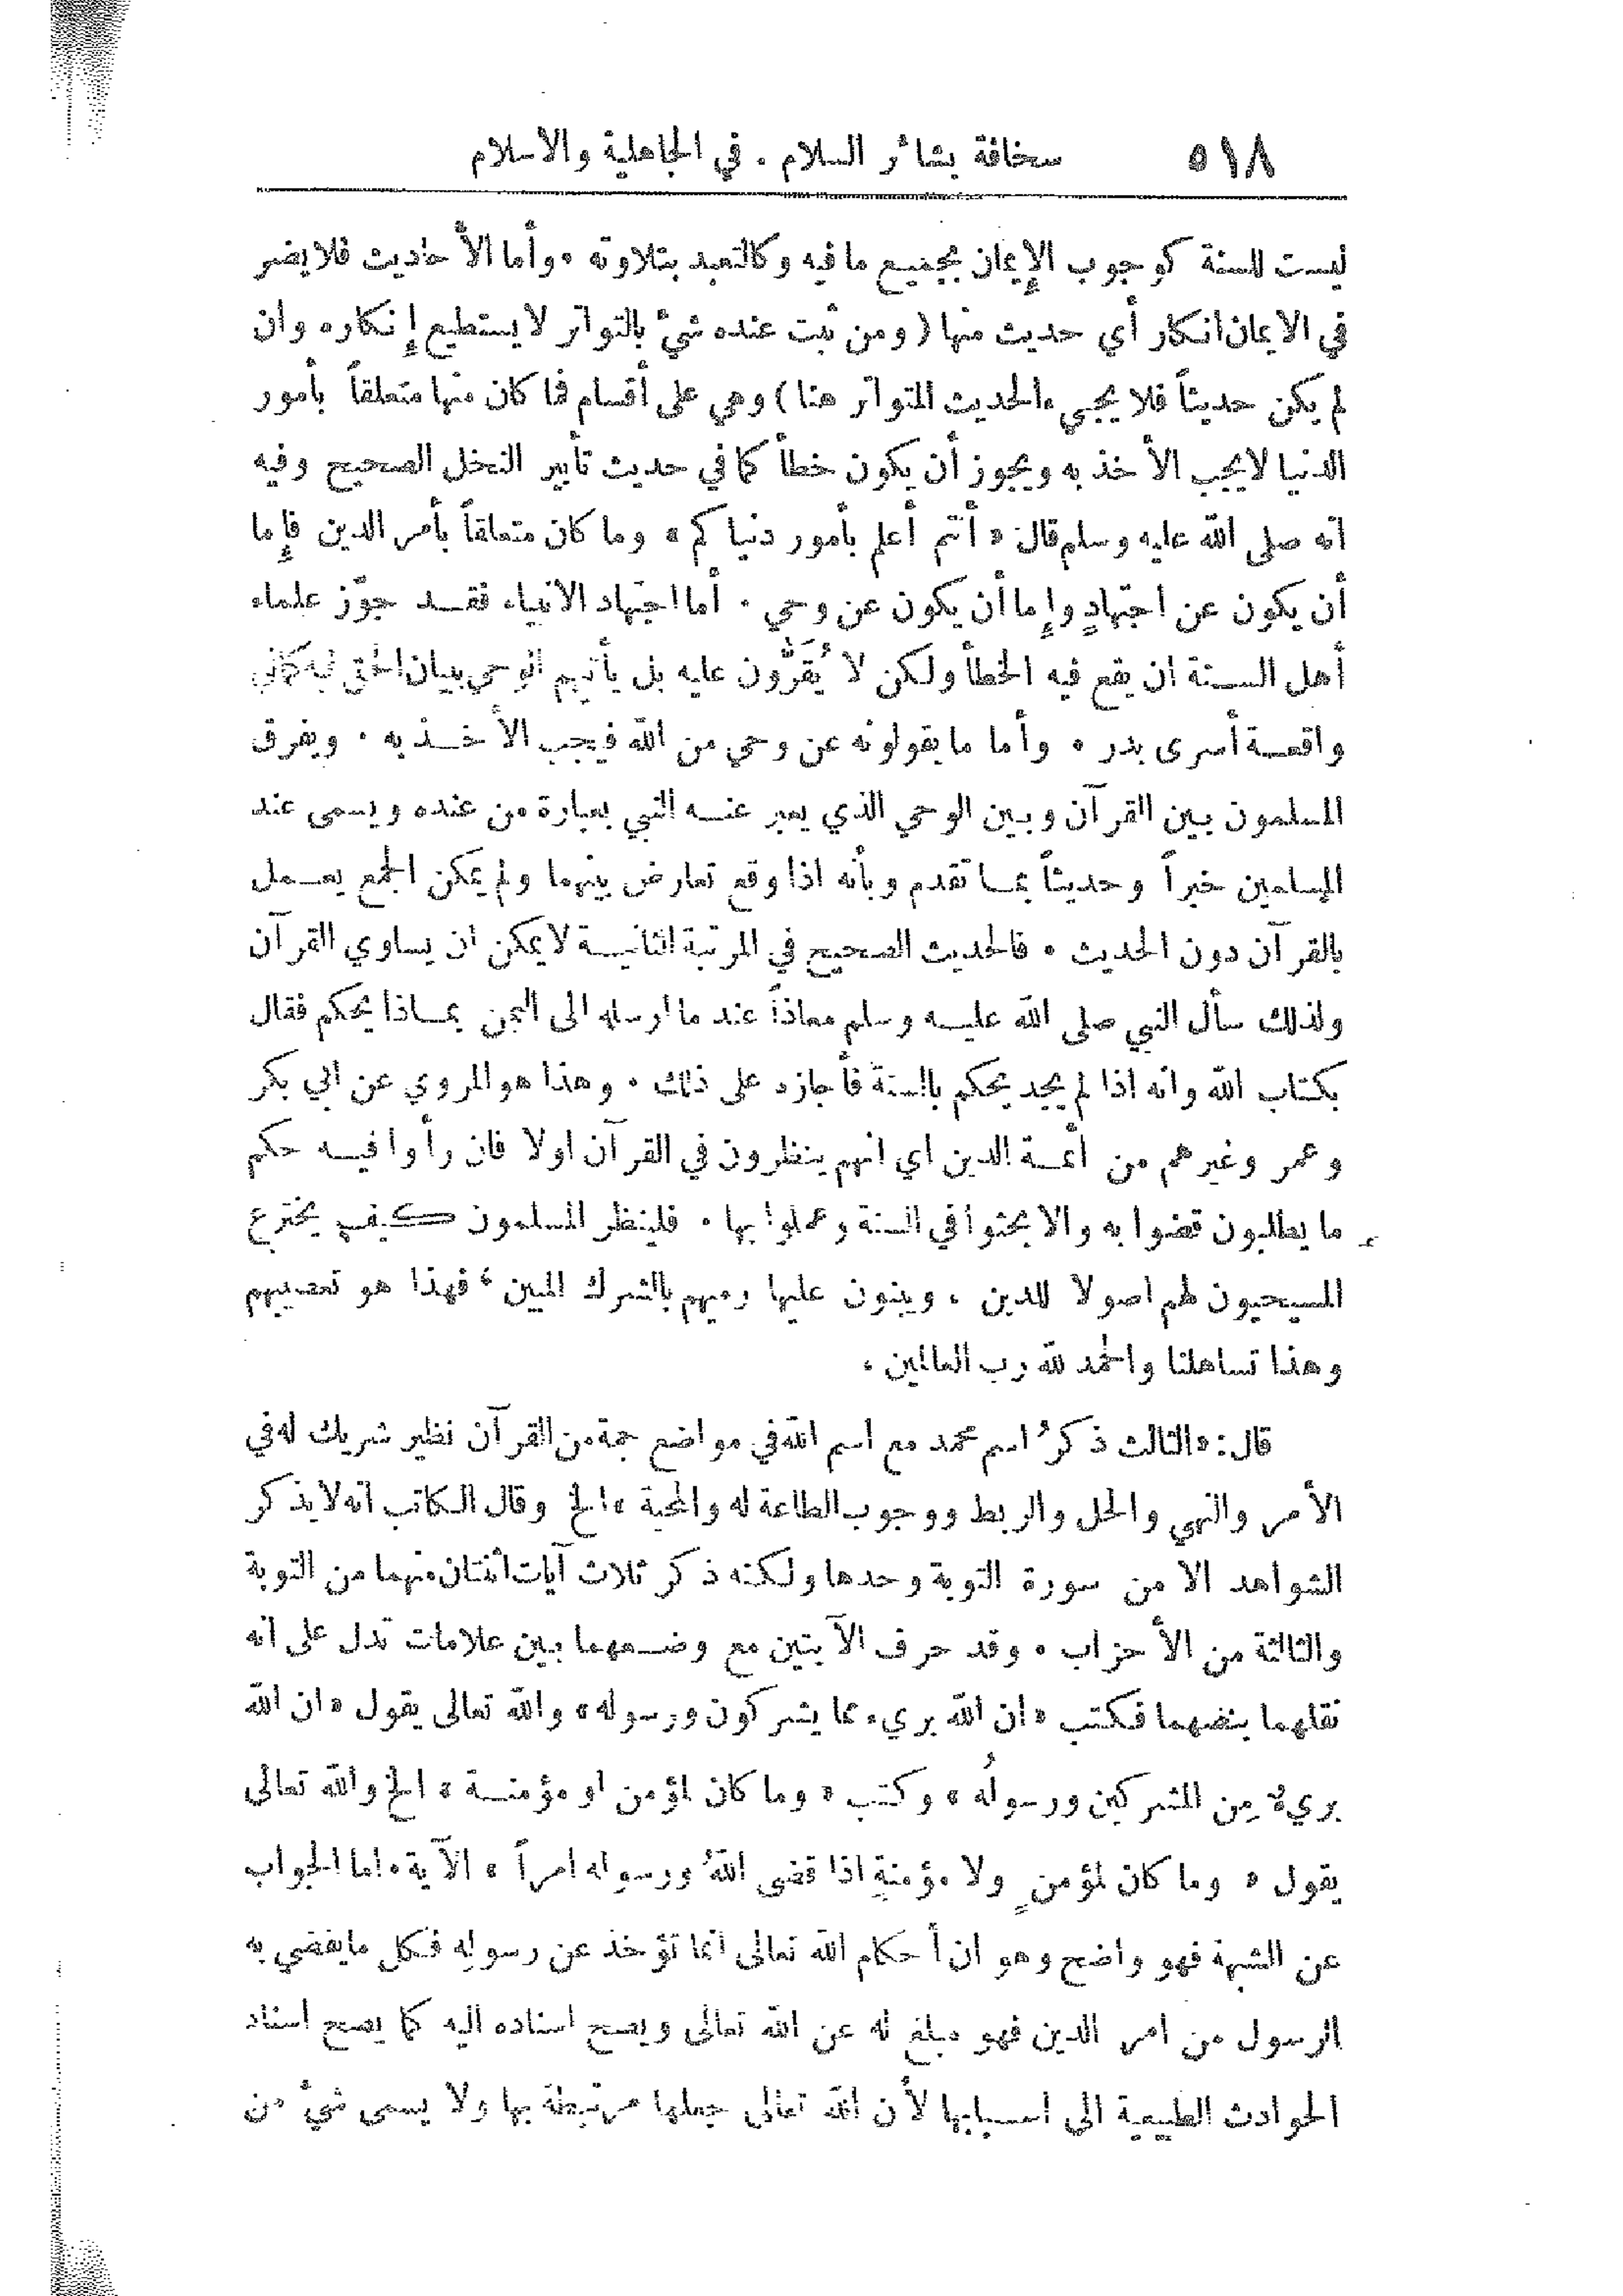 ٥١٨ سخافة بشائر السلام . في الجاهلية والاسلام
ليست للسنة كوجوب الإيمان بجميع ما فيه وكالتعبد بتلاوته . وأما الأحاديث فلا يضر
في الايمان انكار أي حديث منها ( ومن ثبت عنده شيءٌ بالتواتر لا يستطيع إنكاره وان
لم يكن حديثاً فلا يجيء الحديث المتواتر هنا ) وهي على أقسام فما كان منها متعلقاً بأمور
الدنيا لا يجب الأخذ به ويجوز أن يكون خطأ كما في حديث تأبير النخل الصحيح وفيه
انه صلى الله عليه وسلم قال « أنتم أعلم بأمور دنياكم » وما كان متعلقاً بأمر الدين فإما
أن يكون عن اجتهادٍ وإما أن يكون عن وحي . أما اجتهاد الانبياء فقد جوّز علماء
أهل السنة ان يقع فيه الخطأ ولكن لا يُقَرُّون عليه بل يأتيهم الوحي ببيان الحق فيه كما في
واقعة أسرى بدر . وأما ما يقولونه عن وحي من الله فيجب الأخذ به . ويفرق
المسلمون بين القرآن وبين الوحي الذي يعبر عنه النبي بعبارة من عنده ويسمى عند
المسلمين خبراً وحديثاً بما تقدم وبأنه اذا وقع تعارض بينهما ولم يمكن الجمع يعمل
بالقرآن دون الحديث . فالحديث الصحيح في المرتبة الثانية لا يمكن ان يساوي القرآن
ولذلك سأل النبي صلى الله عليه وسلم معاذاً عند ما ارسله الى اليمن بماذا يحكم فقال
بكتاب الله وانه اذا لم يجد يحكم بالسنة فأجازه على ذلك . وهذا هو المروي عن ابي بكر
وعمر وغيرهم من أئمة الدين اي انهم ينظرون في القرآن اولا فان رأوا فيه حكم
ما يطلبون قضوا به والا بحثوا في السنة وعملوا بها . فلينظر المسلمون كيف يخترع
المسيحيون لهم اصولا للدين ، ويبنون عليها رميهم بالشرك المبين ، فهذا هو تعصبهم
وهذا تساهلنا والحمد لله رب العالمين .
قال : «الثالث ذكرُ اسم محمد مع اسم الله في مواضع جمة من القرآن نظير شريك له في
الأمر والنهي والحل والربط ووجوب الطاعة له والمحبة » الخ وقال الكاتب انه لا يذكر
الشواهد الا من سورة التوبة وحدها ولكنه ذكر ثلاث آيات اثنتان منهما من التوبة
والثالثة من الأحزاب . وقد حرف الآيتين مع وضعهما بين علامات تدل على انه
نقلهما بنصهما فكتب «ان الله بريء مما يشركون ورسوله» والله تعالى يقول «ان الله
بريءٌ مِن المشركين ورسولُه » وكتب « وما كان لمؤمن او مؤمنة » الخ والله تعالى
يقول « وما كان لمؤمنٍ ولا مؤمنةٍ اذا قضى اللهُ ورسوله امراً » الآية . اما الجواب
عن الشبهة فهو واضح وهو ان أحكام الله تعالى انما تؤخذ عن رسوله فكل ما يقضي به
الرسول من امر الدين فهو مبلغ له عن الله تعالى ويصح اسناده اليه كما يصح اسناد
الحوادث الطبيعية الى اسبابها لأن الله تعالى جعلها مرتبطة بها ولا يسمى شيءٌ من